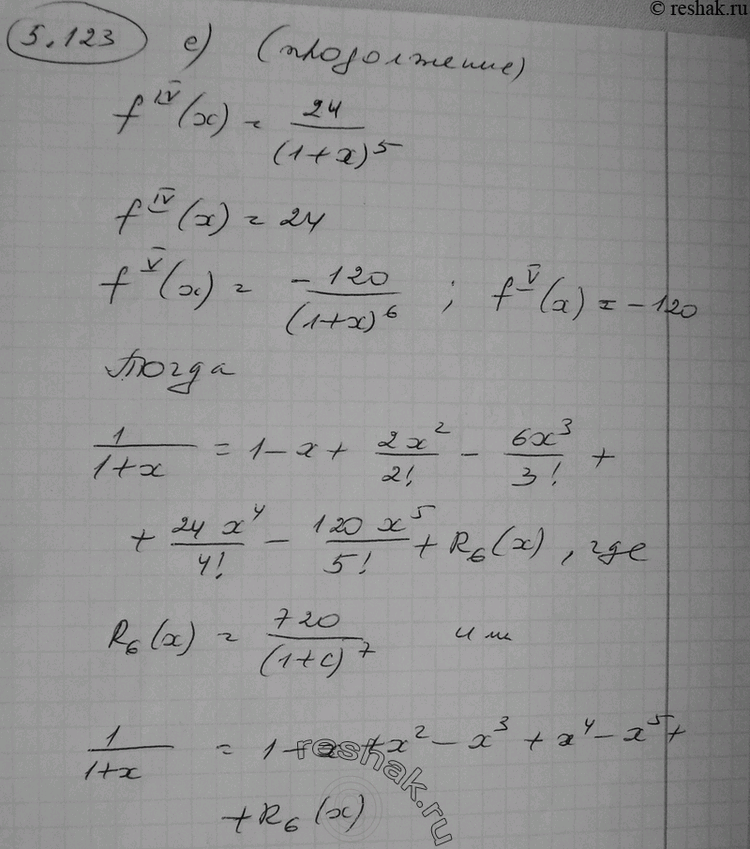 © reshak.ru
5.123 е) (продолжение)
f^IV(x) = 24/(1+x)^5
f^IV(x) = 24
f^V(x) = -120/(1+x)^6 ; f^V(x) = -120
Тогда
1/(1+x) = 1 - x + 2x^2/2! - 6x^3/3! +
+ 24x^4/4! - 120x^5/5! + R_6(x), где
R_6(x) = 720/(1+c)^7 или
1/(1+x) = 1 - x + x^2 - x^3 + x^4 - x^5 +
+ R_6(x)
reshak.ru